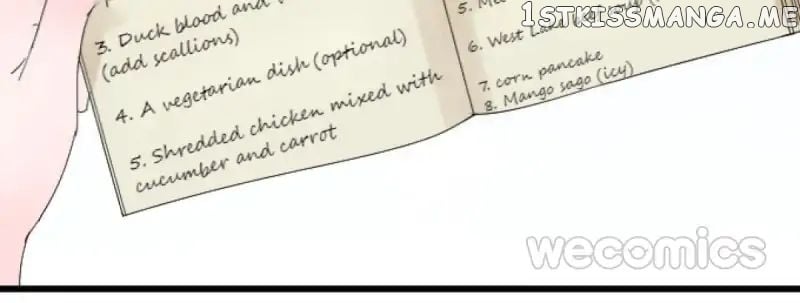 3. Duck blood and
(add scallions)
4. A vegetarian dish (optional)
5. Shredded chicken mixed with
cucumber and carrot
5.
6. West
7. corn pancake
8. Mango sago (icy)
1STKISSMANGA.ME
wecomics